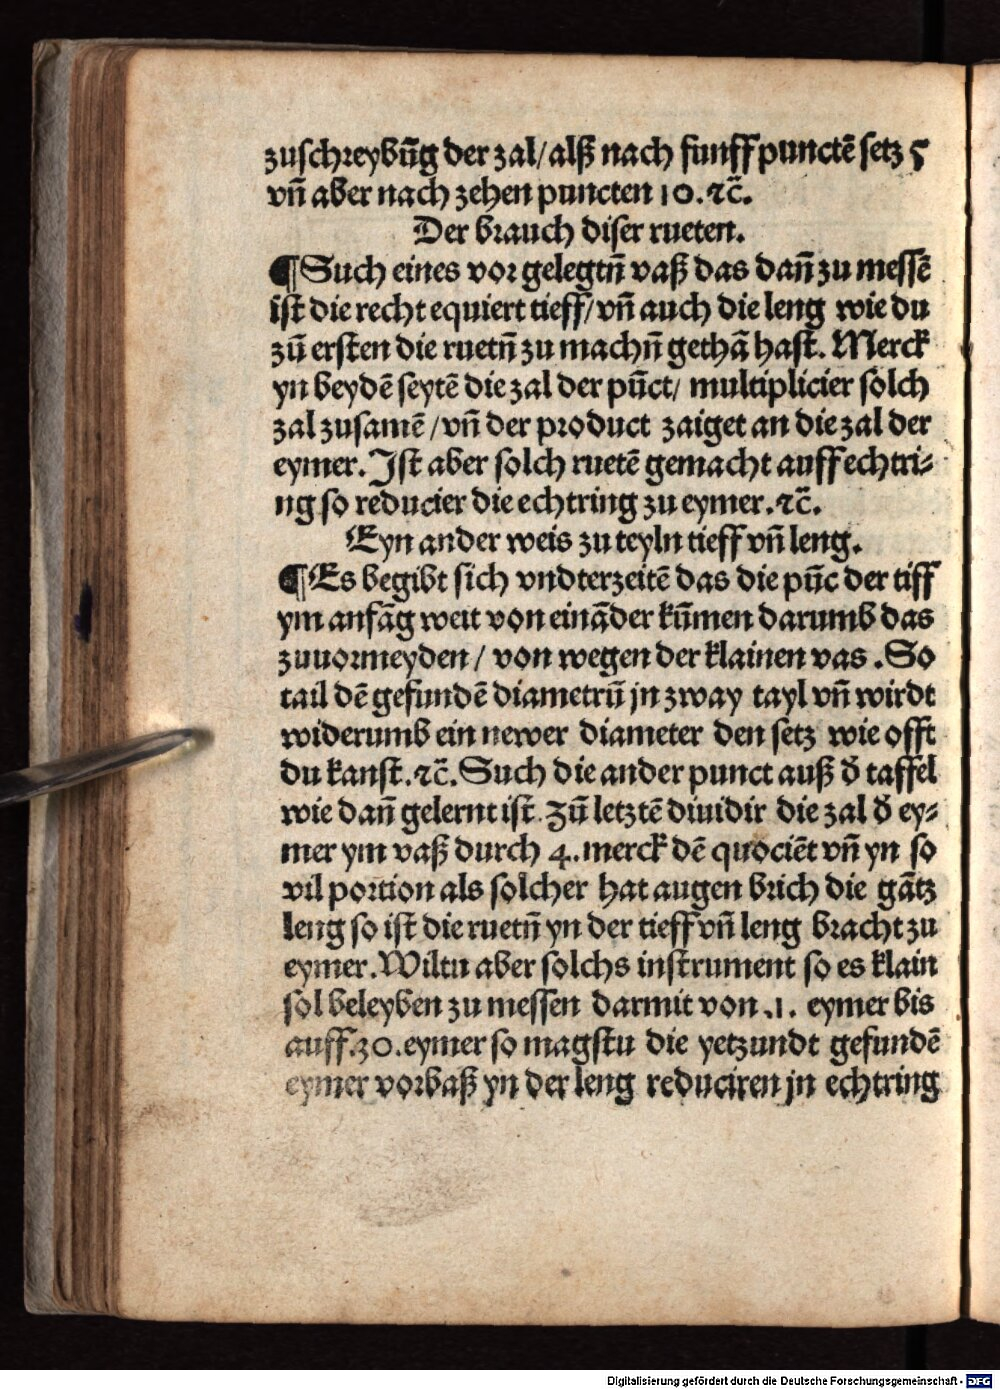 zuschreybũg der zal/ alß nach funff punctẽ setz 5
vñ aber nach zehen puncten 10. ⁊c̃.
Der brauch diser rueten.
¶Such eines vor gelegtñ vaß das dañ zu messẽ
ist die recht equiert tieff/ vñ auch die leng wie du
zũ ersten die ruetñ zu machñ gethã hast. Merck
yn beydẽ seytẽ die zal der pũct/ multiplicier solch
zal zusamẽ /vñ der product zaiget an die zal der
eymer. Ist aber solch ruetẽ gemacht auff echtri⸗
ng so reducier die echtring zu eymer. ⁊c̃.
Eyn ander weis zu teyln tieff vñ leng.
¶Es begibt sich vndterzeitẽ das die pũc der tiff
ym anfãg weit von einãder kũmen darumb das
zuuormeyden / von wegen der klainen vas . So
tail dẽ gefundẽ diametrũ jn zway tayl vñ wirdt
widerumb ein newer diameter den setz wie offt
du kanst. ⁊c̃. Such die ander punct auß d̕ taffel
wie dañ gelernt ist. Zũ letztẽ diuidir die zal d̕ ey⸗
mer ym vaß durch 4. merck dẽ quociẽt vñ yn so
vil portion als solcher hat augen brich die gãtz
leng so ist die ruetñ yn der tieff vñ leng bracht zu
eymer. Wiltu aber solchs instrument so es klain
sol beleyben zu messen darmit von .1. eymer bis
auff .30. eymer so magstu die yetzundt gefundẽ
eymer vorbaß yn der leng reduciren jn echtring
Digitalisierung gefördert durch die Deutsche Forschungsgemeinschaft - DFG